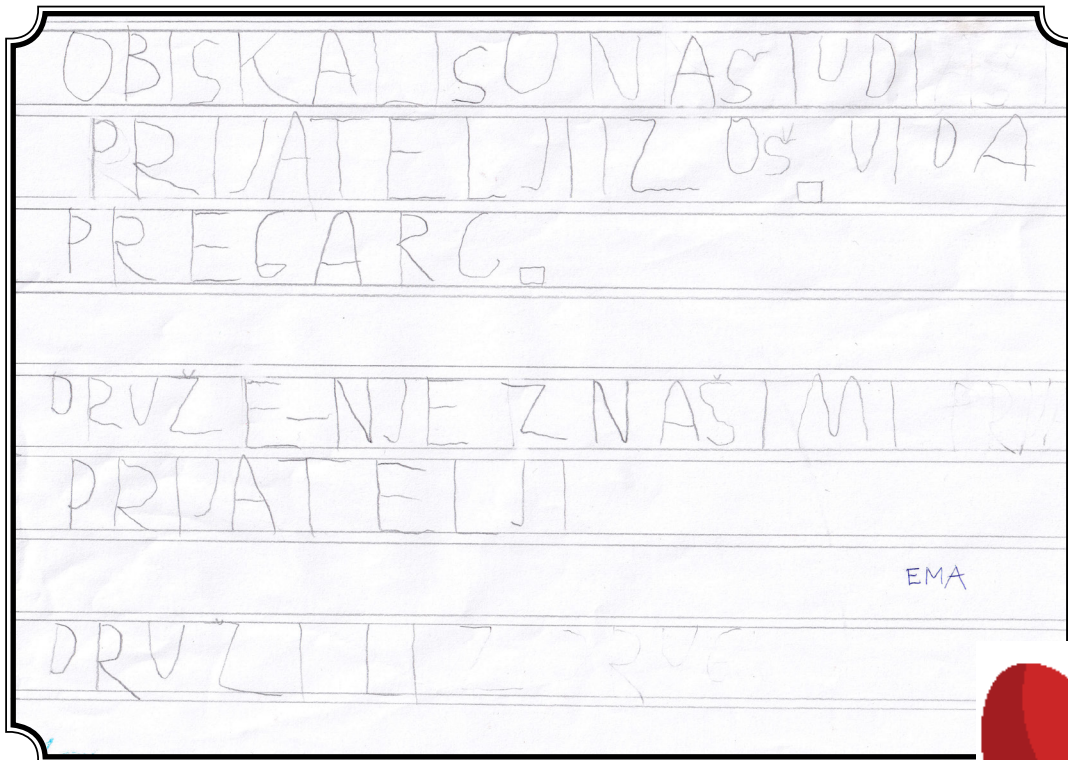 OBISKALI SO NAS TUDI
PRIJATELJI IZ OŠ. VIDA
PREGARC.
DRUŽENJE Z NAŠIMI
PRIJATELJI
EMA
DRUŽILI Z